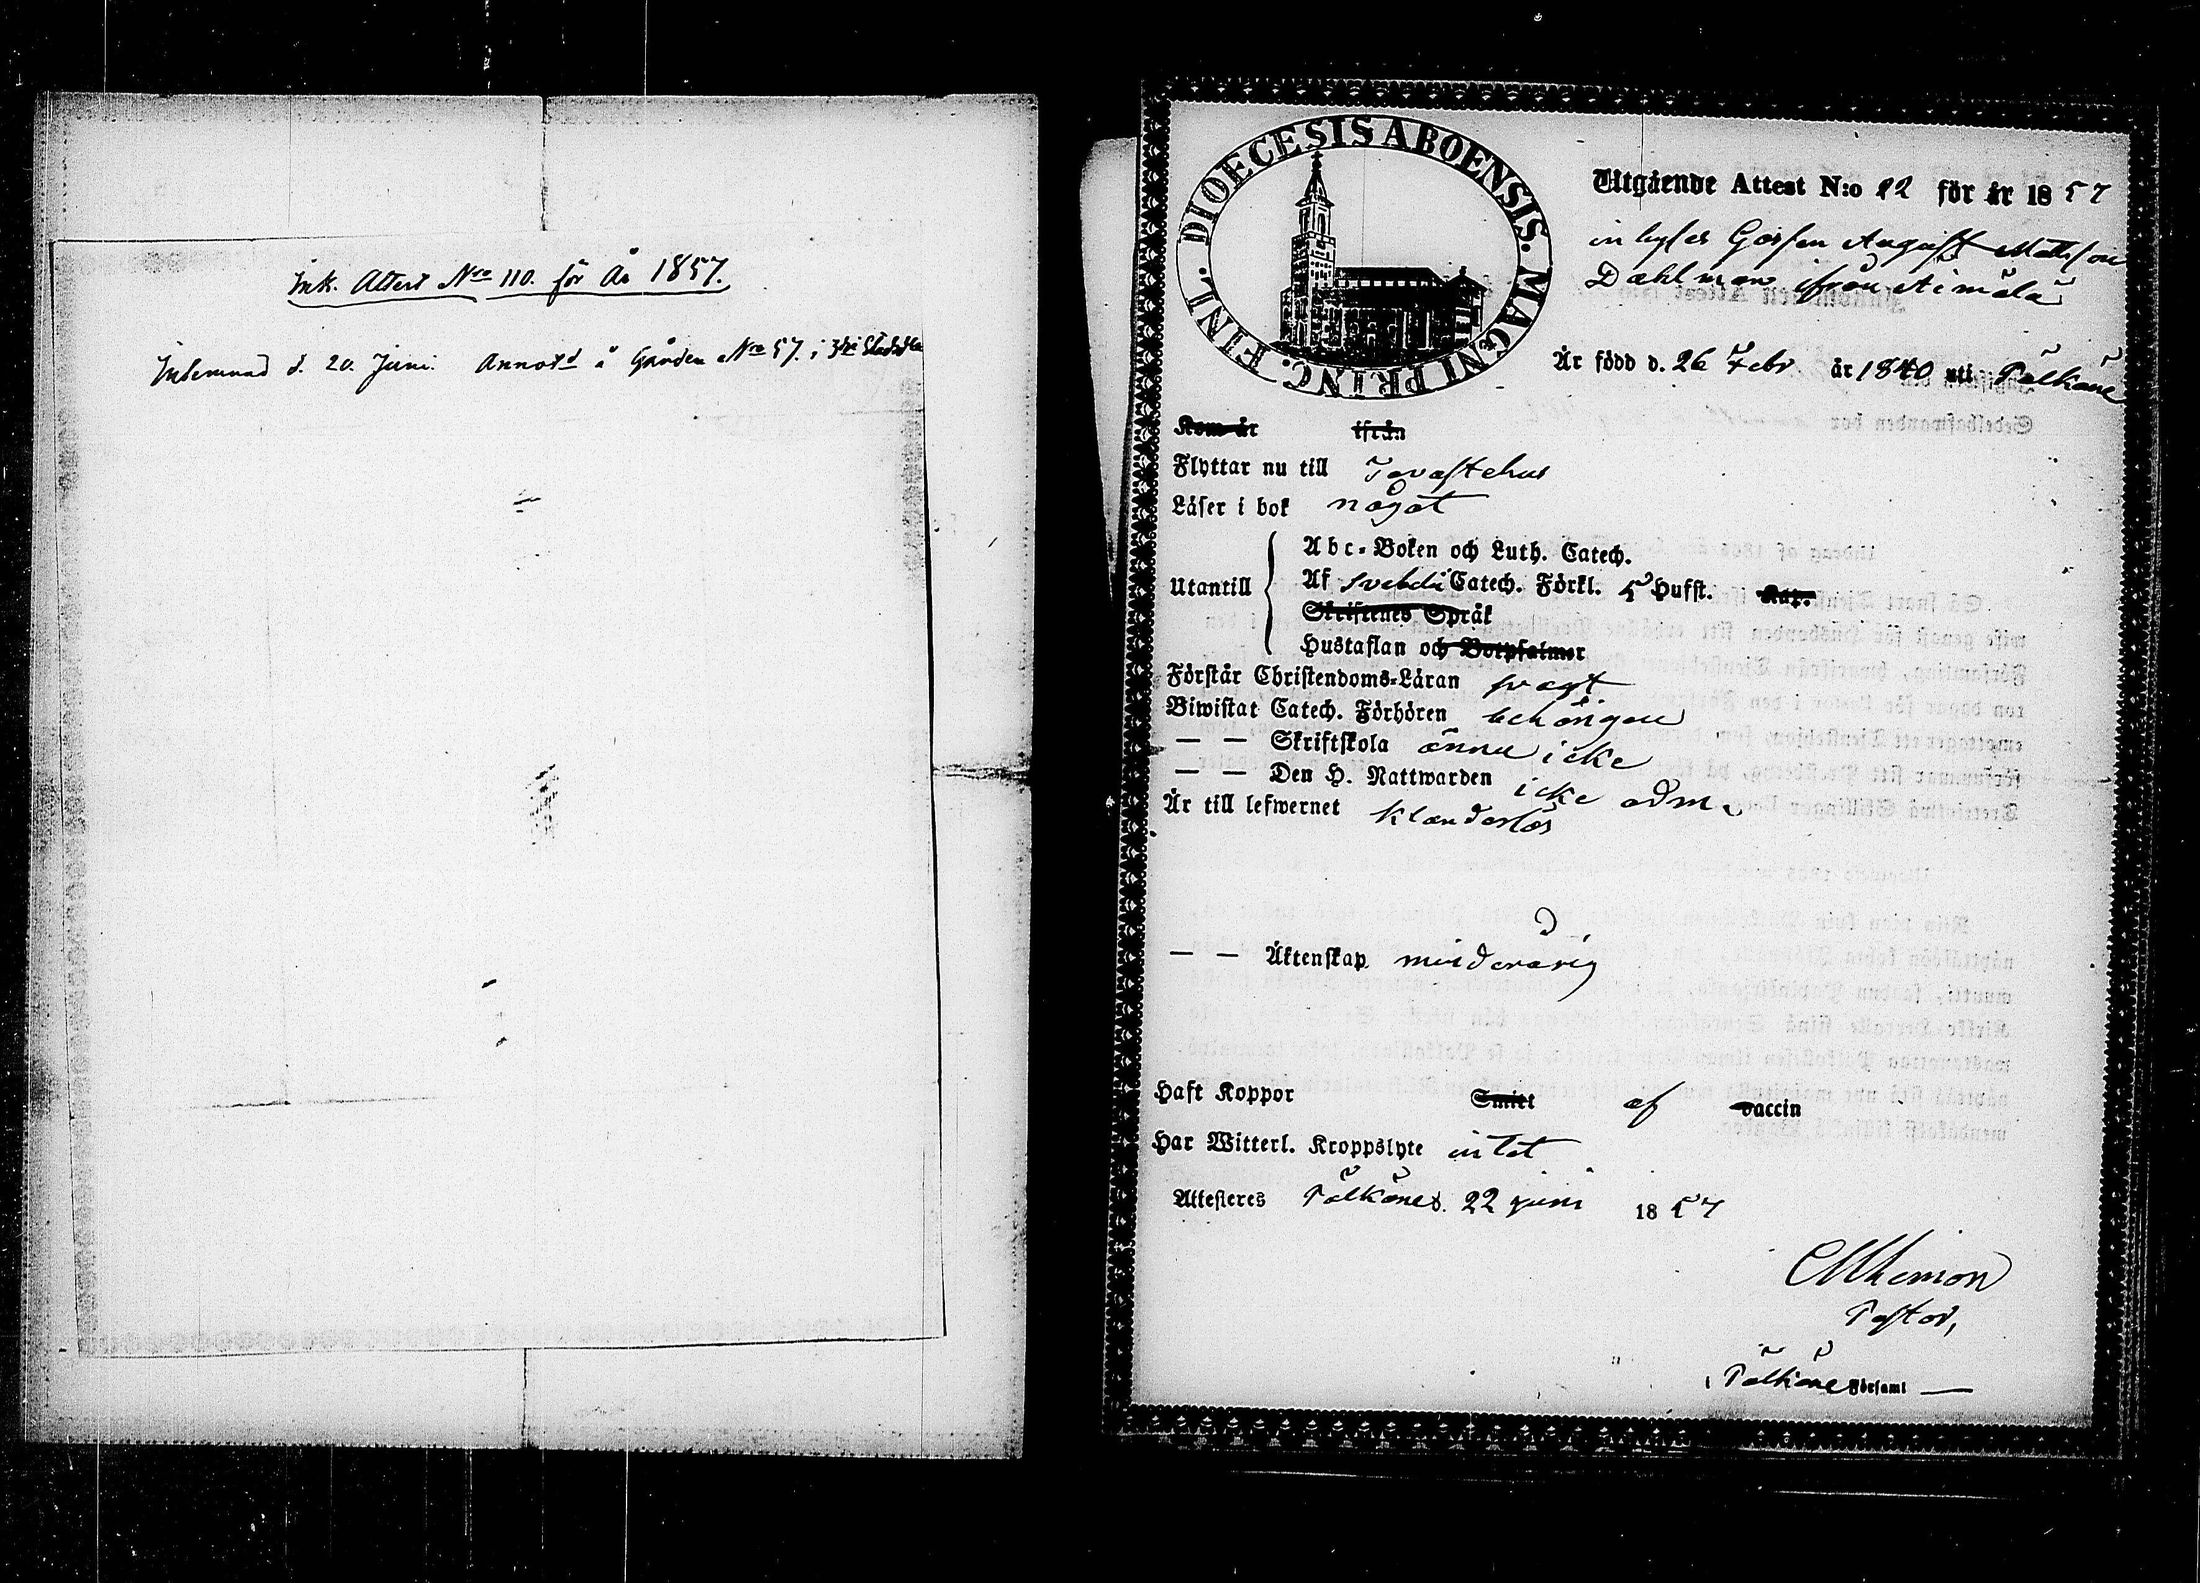 Ink. Attest Nro 110. för År 1857.
Inlemnad d. 20 Juni. Annotd å Gården Nro 57. i 3dje Stadsdelen
DIOECESIS ABOENSIS. MAGNI PRINC. FINL.
Utgående Attest N:o 22 för år 1857
inhyses Gossen August Mattsson
Dahlman ifrån Aimälä
Är född d. 26 Febr år 1840 uti Pälkäne
Kom år ifrån
Flyttar nu till Tavastehus
Läser i bok något
Utantill
Abc-Boken och Luth. Catech.
Af Svebelii Catech. Förkl. 5 Hufst. Kap.
Skriftenes Språk
Hustaflan och Botpsalmer
Förstår Christendoms-Läran svagt
Biwistat Catech. Förhören behörigen
— — Skriftskola ännu icke
— — Den H. Nattwarden icke adm.
Är till lefwernet klanderlös
— — Äktenskap minderårig
Haft Koppor Smitt af vaccin
Har Witterl. Kroppslyte intet
Attesteres Pälkäne d. 22 juni 1857
Pastor,
i Pälkäne Församl